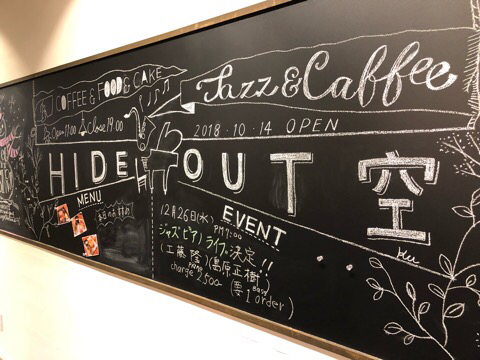 COFFEE & FOOD & CAKE
Jazz & Caffee
Open 11:00 Close 19:00
2018・10・14 OPEN
HIDE OUT 空
Ku
MENU
本日のおすすめ
EVENT
12月26日(水) PM7:00
ジャズピアノライブ決定!!
(工藤 隆 Piano)(島原正樹 Bass)
charge 2500- (要1order)